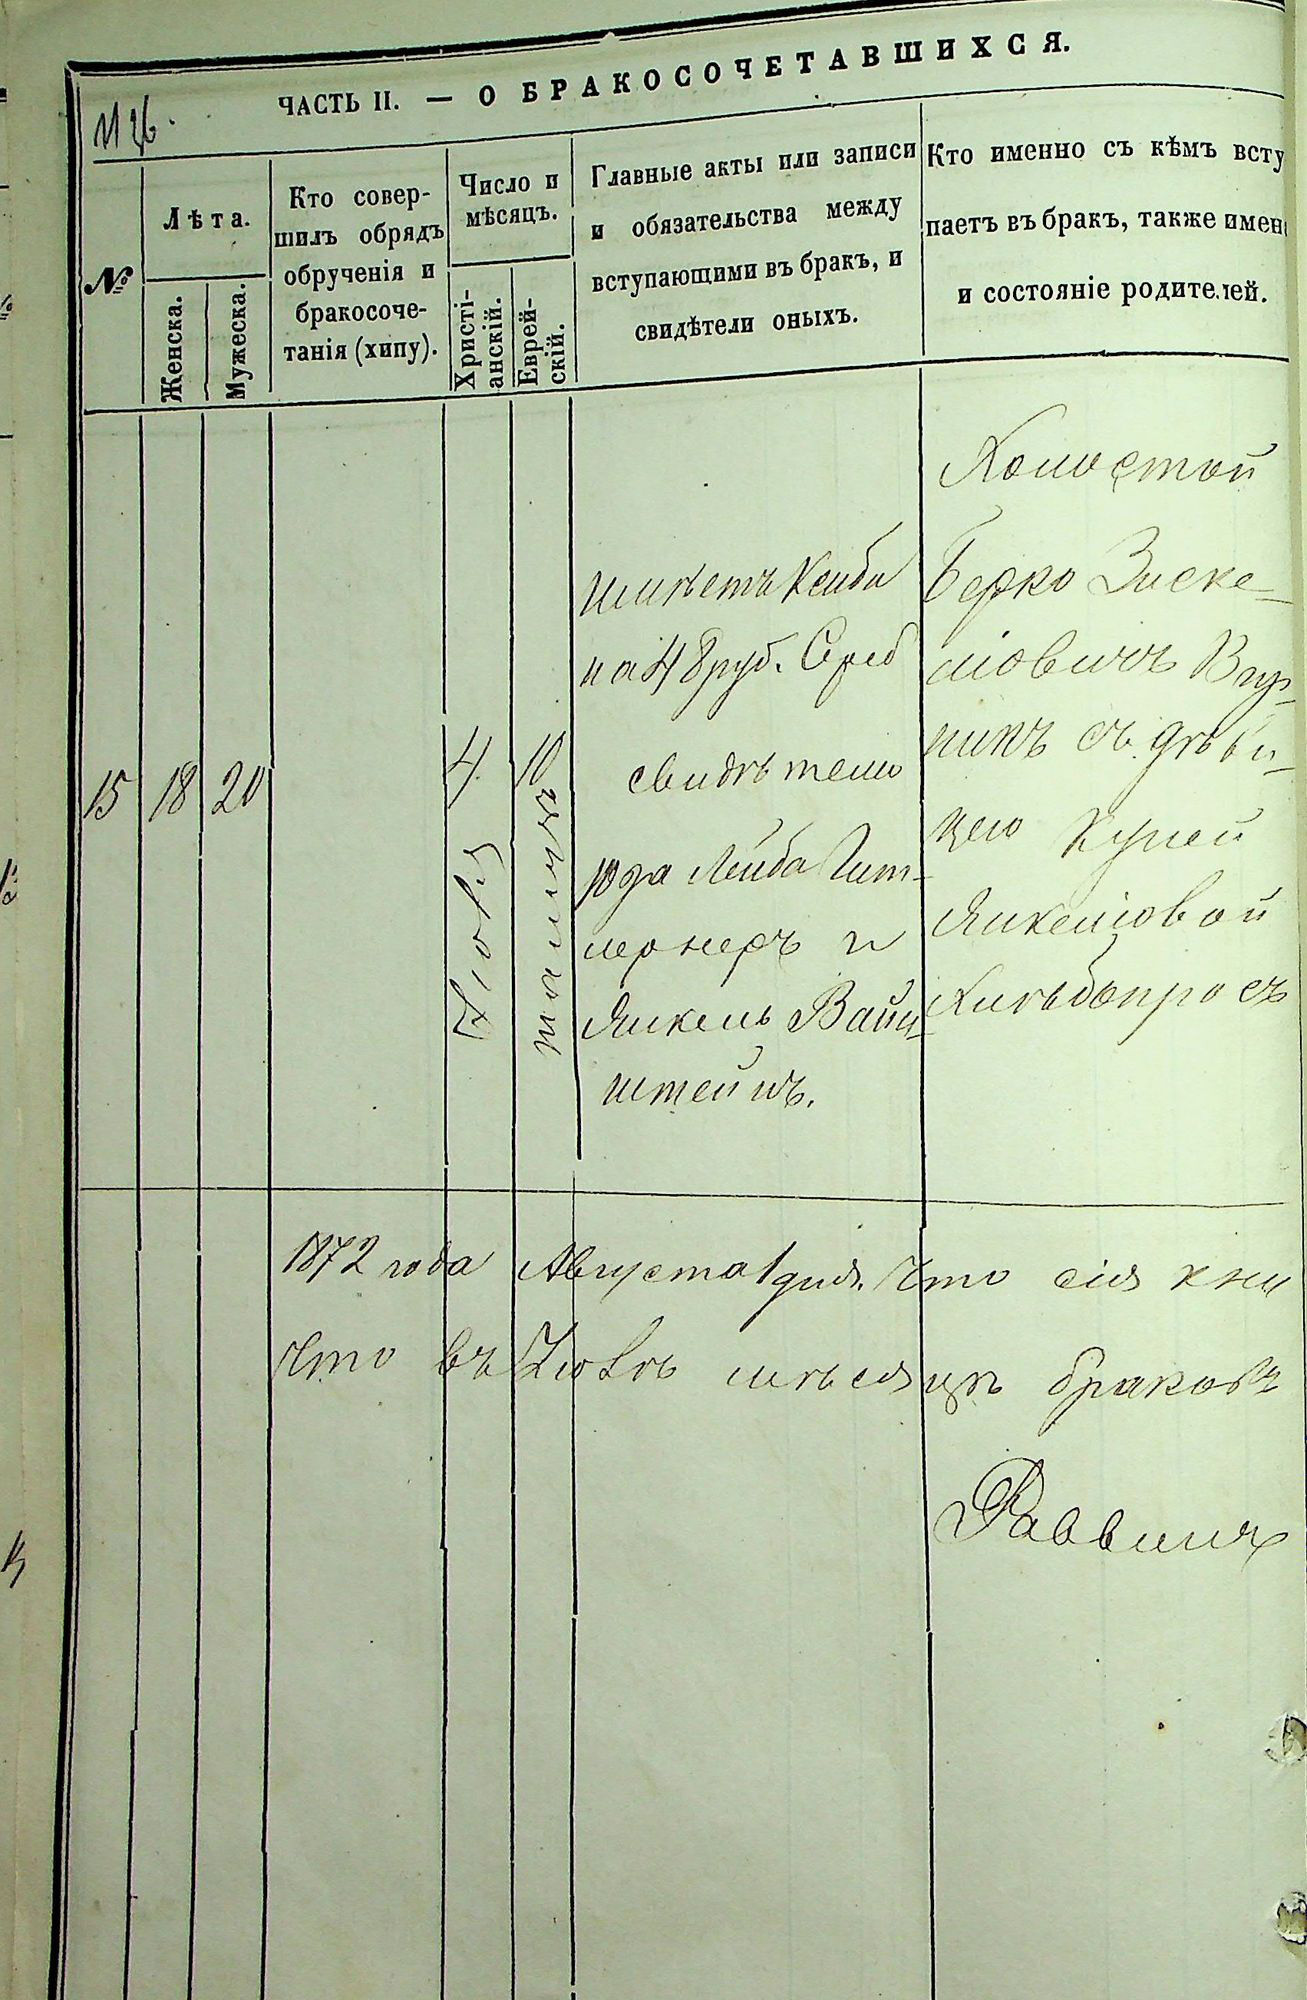 ЧАСТЬ II. — О БРАКОСОЧЕТАВШИХСЯ.
№
Лѣта.
Женска.
Мужеска.
Кто совер-
шилъ обрядъ
обрученія и
бракосоче-
танія (хипу).
Число и
мѣсяцъ.
Христі-
анскій.
Еврей-
скій.
Главные акты или записи
и обязательства между
вступающими въ бракъ, и
свидѣтели оныхъ.
Кто именно съ кѣмъ всту
паетъ въ бракъ, также имен
и состояніе родителей.
15
18
20
4
Іюля
10
тамузъ
на 48 руб. Сереб
свидѣтели
Юда Лейба Гит-
лернеръ и
Янкель Вайн-
штейнъ.
Холостой
Берко Зиске-
ліовичъ Вну-
никъ съ дѣви-
цею
Янкеліовой
Хлѣбопросъ
1872 года Августа 1 дня. Что сія кни
Что въ Іюлѣ мѣсяцѣ браковъ
Раввинъ